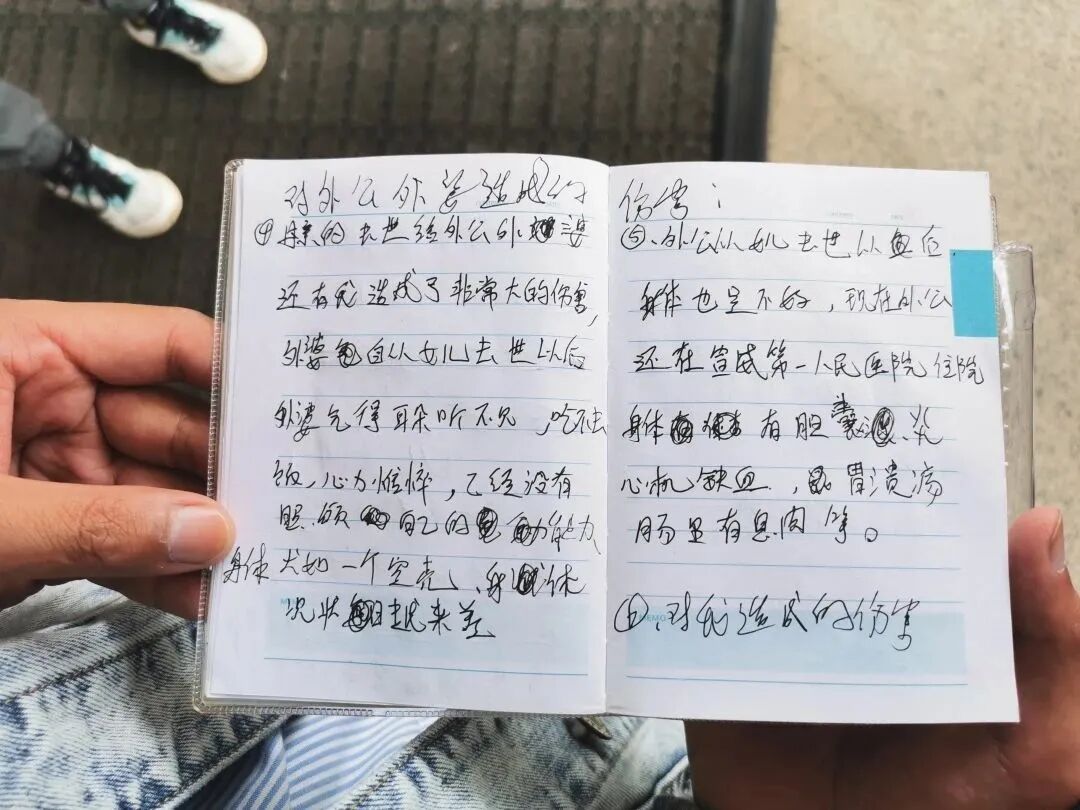 对外公外婆造成的
④ 母亲的去世给外公外婆
还有我造成了非常大的伤害,
外婆自从女儿去世以后
外婆气得耳朵听不见,吃不去
饭,心力憔悴,已经没有
照顾自己的能力
身体犹如一个空壳、身体
况状越来差
伤害:
⑤、外公从女儿去世以后
身体也是不好,现在外公
还在宣威第一人民医院住院
身体有胆囊炎
心机缺血,胃溃疡
肠里有息肉等。
⑥、对我造成的伤害